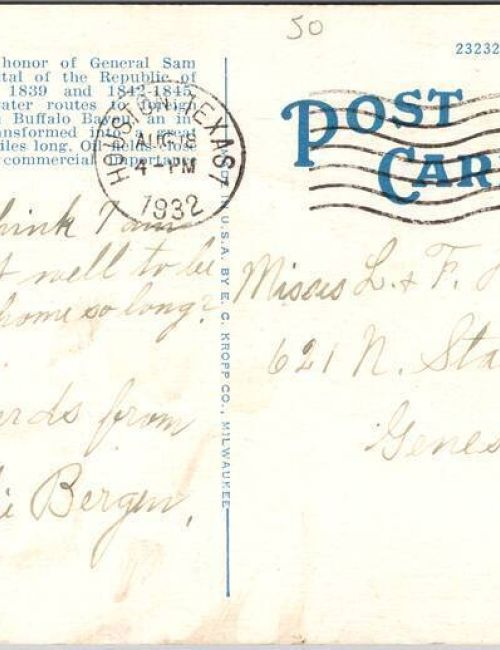 50
23232
honor of General Sam
ital of the Republic of
1839 and 1842-1845.
water routes to foreign
Buffalo Bayou, an in
ansformed into a great
iles long. Oil fields close
commercial importance
HOUSTON, TEXAS
4-PM
1932
POST
CAR
hink I am
t well to be
home so long?
ards from
i Bergen,
D. IN U.S.A. BY E. C. KROPP CO., MILWAUKEE
Misses L. & F.
621 N. Sta
Genes